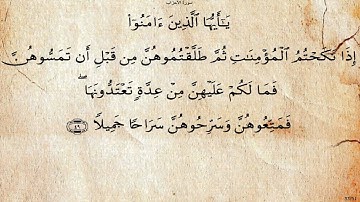 سورة الأحزاب
يَـٰٓأَيُّهَا ٱلَّذِينَ ءَامَنُوٓا۟
إِذَا نَكَحْتُمُ ٱلْمُؤْمِنَـٰتِ ثُمَّ طَلَّقْتُمُوهُنَّ مِن قَبْلِ أَن تَمَسُّوهُنَّ
فَمَا لَكُمْ عَلَيْهِنَّ مِنْ عِدَّةٍ تَعْتَدُّونَهَا ۖ
فَمَتِّعُوهُنَّ وَسَرِّحُوهُنَّ سَرَاحًا جَمِيلًا ٤٩